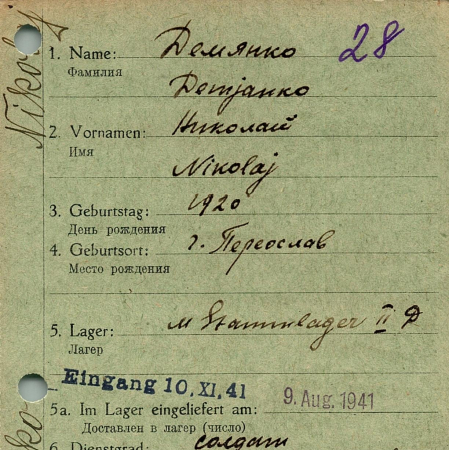 Nikolaj
28
1. Name: Демянко
Фамилия
Demjanko
2. Vornamen: Николай
Имя
Nikolaj
3. Geburtstag: 1920
День рождения
4. Geburtsort: г. Переослав
Место рождения
5. Lager: M Stammlager II D
Лагер
Eingang 10. XI. 41
5a. Im Lager eingeliefert am: 9. Aug. 1941
Доставлен в лагер (число)
6. Dienstgrad: солдат